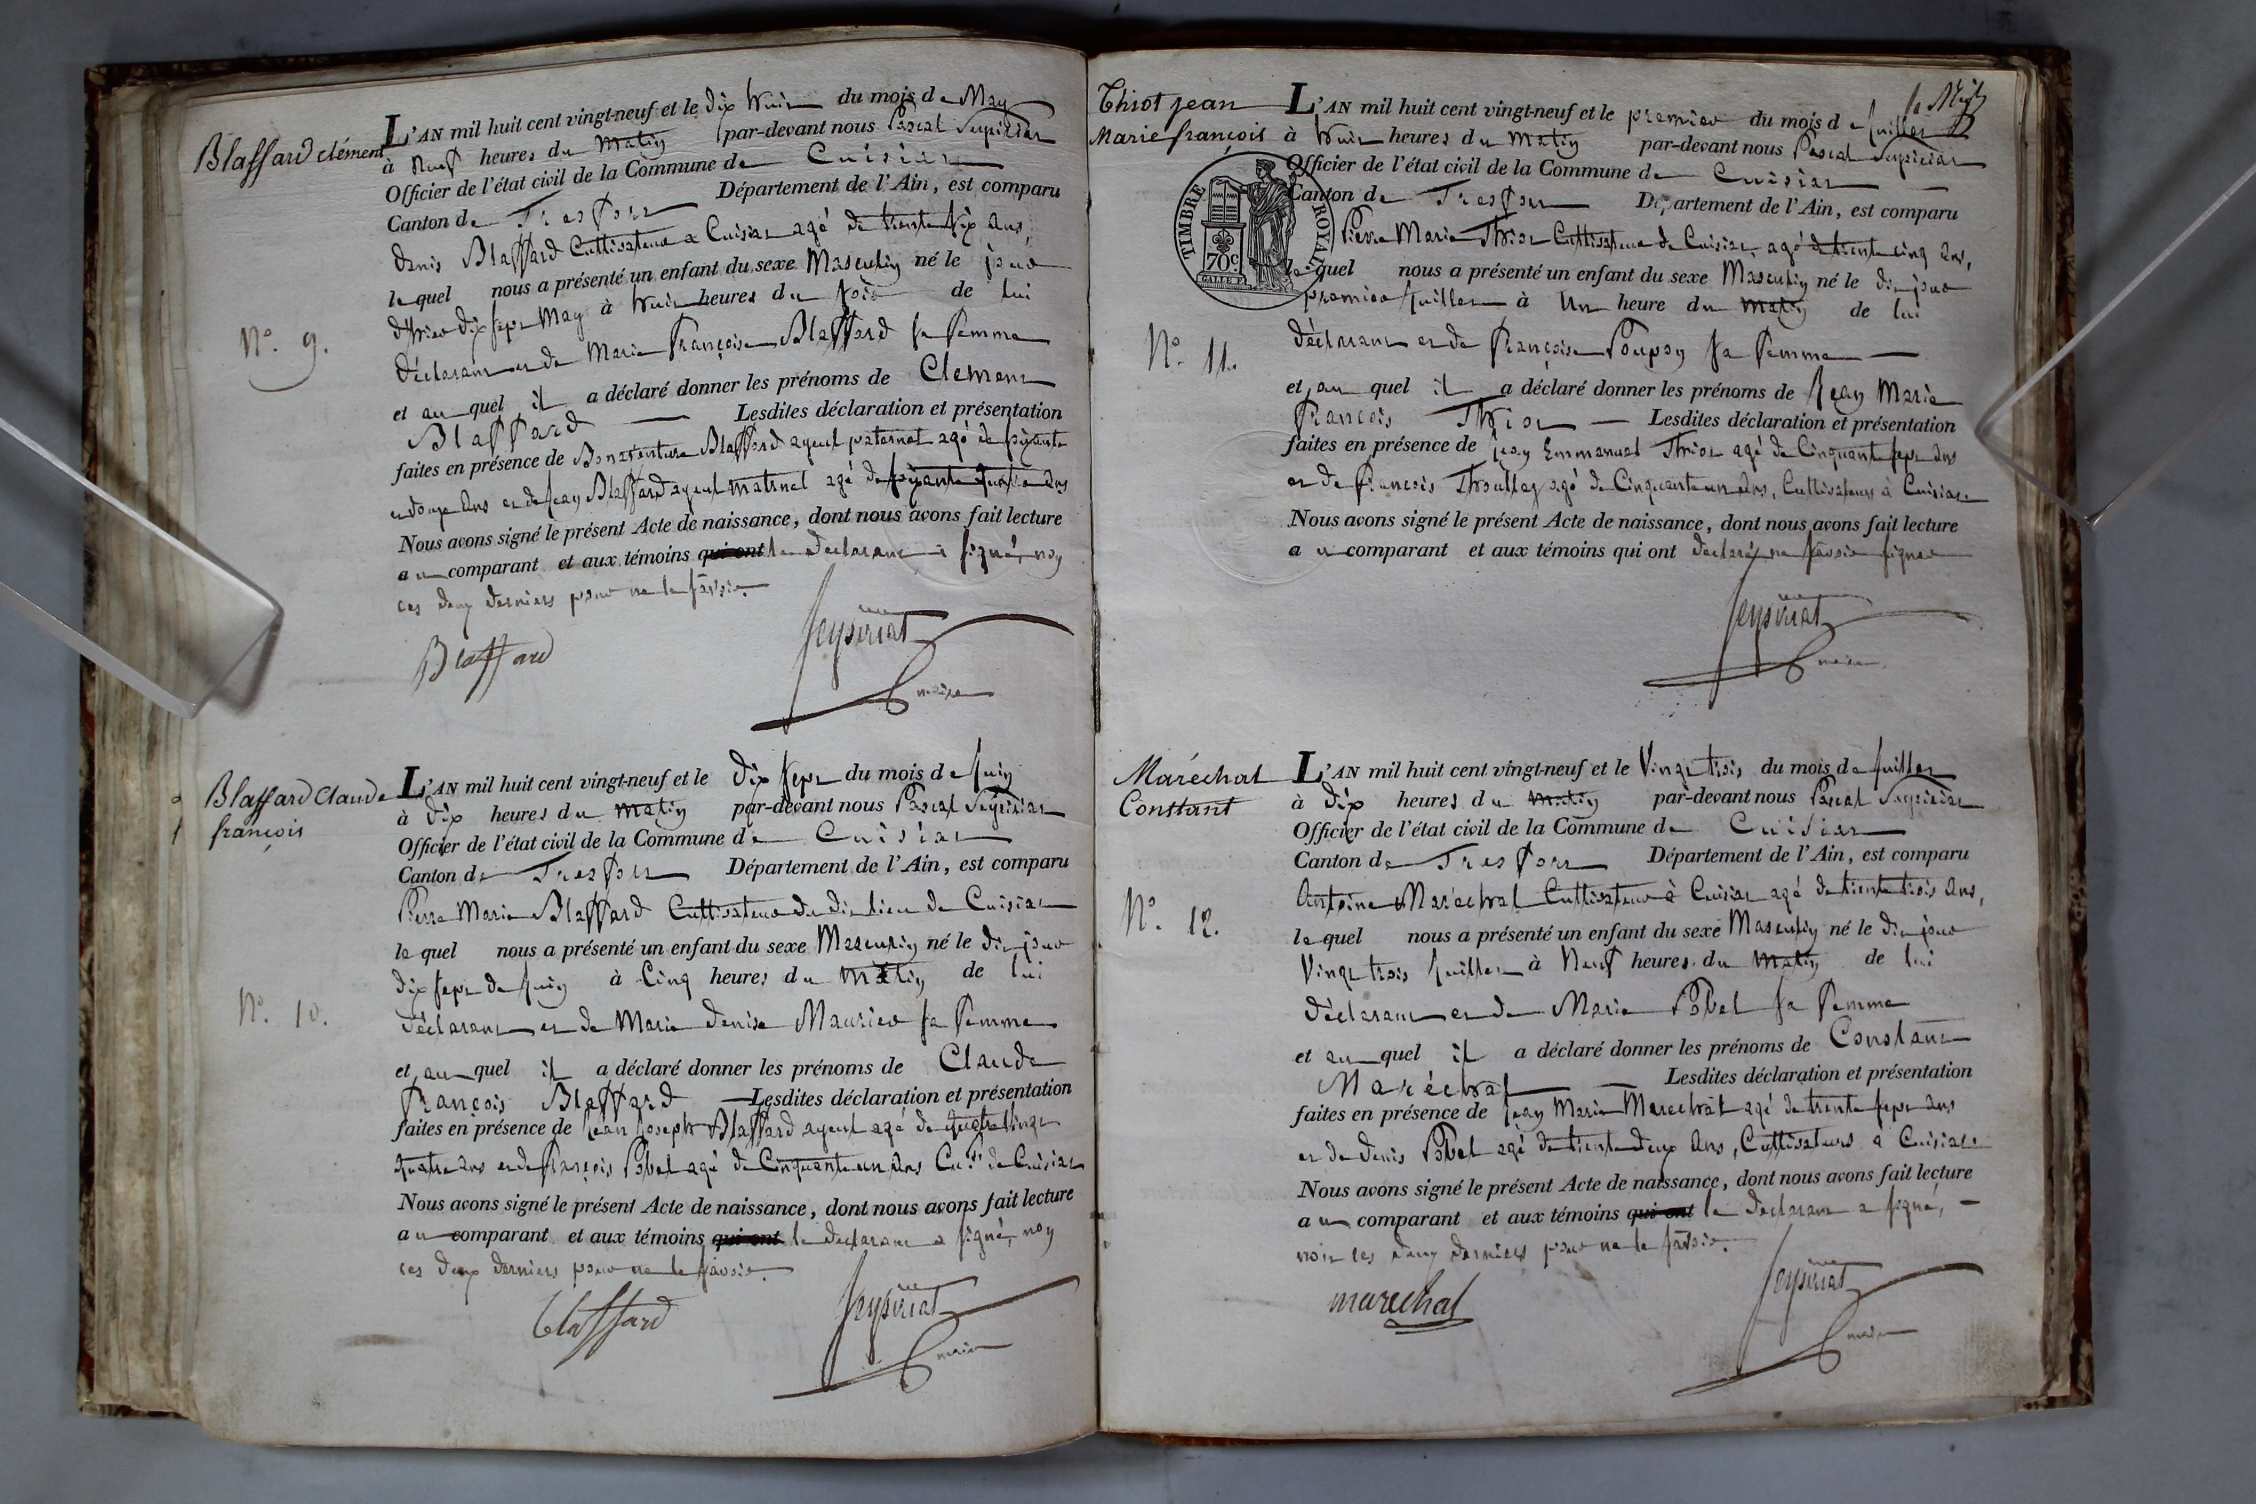 Blaffard clément
L'AN mil huit cent vingt-neuf et le dix huit du mois de May
à neuf heures du matin par-devant nous Pascal Seyssiat
Officier de l'état civil de la Commune de Cuisiat
Canton de Treffort Département de l'Ain, est comparu
denis Blaffard Cultivateur a Cuisiat agé de trente six ans,
lequel nous a présenté un enfant du sexe Masculin né le jour
d'hier dix sept May à huit heures du soir de lui
déclarant et de Marie françoise Blaffard sa femme
No. 9.
et auquel il a déclaré donner les prénoms de Clement
Blaffard Lesdites déclaration et présentation
faites en présence de Bonaventure Blaffard ayeul paternel agé de soixante
et douze ans et de Jean Blaffard ayeul maternel agé de soixante quatre ans
Nous avons signé le présent Acte de naissance, dont nous avons fait lecture
au comparant et aux témoins qui ont le declarant a signé, non
ces deux derniers pour ne le savoir.
Blaffard
maire
Blaffard Claude
françois
L'AN mil huit cent vingt-neuf et le dix sept du mois de Juin
à dix heures du matin par-devant nous Pascal
Officier de l'état civil de la Commune de Cuisiat
Canton de Treffort Département de l'Ain, est comparu
Pierre Marie Blaffard Cultivateur du dit lieu de Cuisiat
lequel nous a présenté un enfant du sexe Masculin né le dit jour
dix sept de Juin à Cinq heures du matin de lui
déclarant et de Marie denise Maurier sa femme
No. 10.
et auquel il a déclaré donner les prénoms de Claude
François Blaffard Lesdites déclaration et présentation
faites en présence de Jean Joseph Blaffard ayeul agé de quatre vingt
quatre ans et de françois Pobel agé de Cinquante un ans Cult. de Cuisiat
Nous avons signé le présent Acte de naissance, dont nous avons fait lecture
au comparant et aux témoins qui ont le declarant a signé, non
ces deux derniers pour ne le savoir.
blaffard
maire
Thiot jean
Marie françois
L'AN mil huit cent vingt-neuf et le premier du mois de Juillet
à huit heures du matin par-devant nous Pascal
Officier de l'état civil de la Commune de Cuisiat
Canton de Treffort Département de l'Ain, est comparu
TIMBRE ROYAL
70c
Pierre Marie Thiot Cultivateur de Cuisiat agé de trente cinq ans,
lequel nous a présenté un enfant du sexe Masculin né le dit jour
premier Juillet à un heure du matin de lui
déclarant et de Françoise sa femme
No. 11.
et auquel il a déclaré donner les prénoms de Jean Marie
François Thiot Lesdites déclaration et présentation
faites en présence de Jean Emmanuel Thiot agé de Cinquante sept ans
et de François agé de Cinquante un ans, Cultivateurs à Cuisiat
Nous avons signé le présent Acte de naissance, dont nous avons fait lecture
au comparant et aux témoins qui ont declaré ne savoir signer
maire
Maréchal
Constant
L'AN mil huit cent vingt-neuf et le Vingt trois du mois de Juillet
à dix heures du matin par-devant nous Pascal
Officier de l'état civil de la Commune de Cuisiat
Canton de Treffort Département de l'Ain, est comparu
Antoine Maréchal Cultivateur à Cuisiat agé de trente trois ans,
lequel nous a présenté un enfant du sexe Masculin né le dit jour
Vingt trois Juillet à neuf heures du matin de lui
déclarant et de Marie Pobel sa femme
No. 12.
et auquel il a déclaré donner les prénoms de Constant
Maréchal Lesdites déclaration et présentation
faites en présence de Jean Marie Marechal agé de trente sept ans
et de denis Pobel agé de trente deux ans, Cultivateurs a Cuisiat
Nous avons signé le présent Acte de naissance, dont nous avons fait lecture
au comparant et aux témoins qui ont le declarant a signé,
non ces deux derniers pour ne le savoir.
marechal
maire